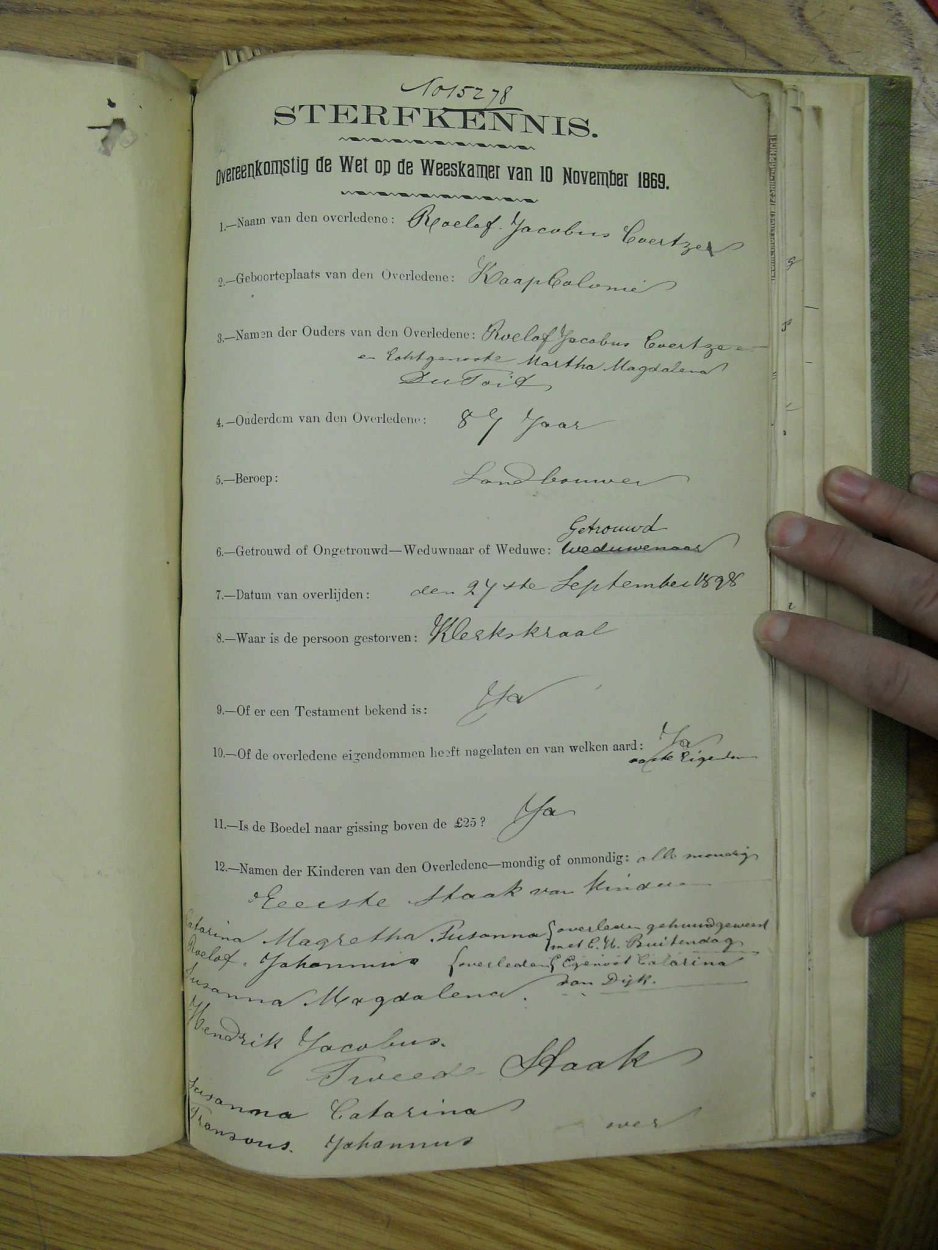 No 15278
STERFKENNIS.
Overeenkomstig de Wet op de Weeskamer van 10 November 1869.
1.—Naam van den overledene: Roelof Jacobus Coertzen
2.—Geboorteplaats van den Overledene: Kaap Colonie
3.—Namen der Ouders van den Overledene: Roelof Jacobus Coertze en
en Echtgenoote Martha Magdalena
Du Toit
4.—Ouderdom van den Overledene: 87 Jaar
5.—Beroep: Landbouwer
Getrouwd
6.—Getrouwd of Ongetrouwd—Weduwnaar of Weduwe: weduwenaar
7.—Datum van overlijden: den 27ste September 1898
8.—Waar is de persoon gestorven: Klerkskraal
9.—Of er een Testament bekend is: Ja
10.—Of de overledene eigendommen heeft nagelaten en van welken aard: Ja
vaste Eigendom
11.—Is de Boedel naar gissing boven de £25? Ja
12.—Namen der Kinderen van den Overledene—mondig of onmondig: alle mondig
Eeerste Staak van Kinderen
Catarina Magretha Susanna {overleden gehuud geweest
met C. H. Buitendag
Roelof Johannus {overleden {Egenoot Catarina
van Dijk.
Susanna Magdalena.
Hendrik Jacobus.
Tweede Staak
Susanna Catarina
Fransous. Johannus over